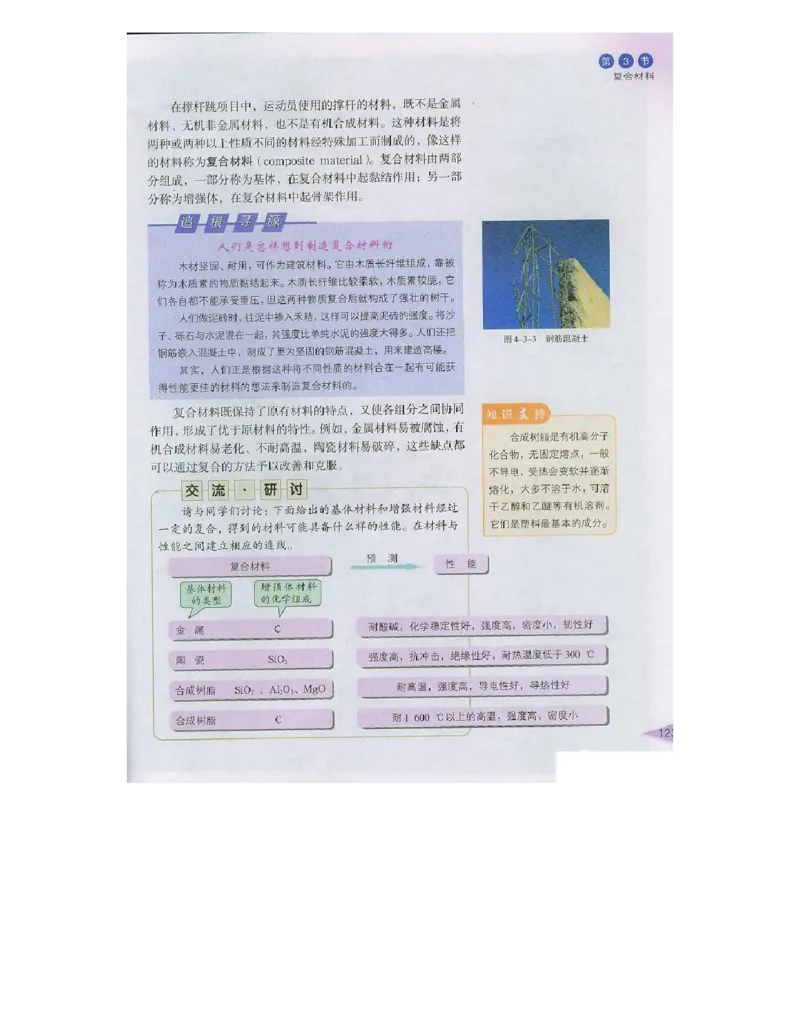 第3节
复合材料
在撑杆跳项目中，运动员使用的撑杆的材料，既不是金属
材料、无机非金属材料，也不是有机合成材料。这种材料是将
两种或两种以上性质不同的材料经特殊加工而制成的，像这样
的材料称为复合材料（composite material）。复合材料由两部
分组成，一部分称为基体，在复合材料中起黏结作用；另一部
分称为增强体，在复合材料中起骨架作用。
追根寻源
人们是怎样想到制造复合材料的
木材坚固、耐用，可作为建筑材料。它由木质长纤维组成，靠被
称为木质素的物质黏结起来。木质长纤维比较柔软，木质素较脆，它
们各自都不能承受重压，但这两种物质复合后就构成了强壮的树干。
人们做泥砖时，往泥中掺入禾秸，这样可以提高泥砖的强度。将沙
子、砾石与水泥混在一起，其强度比单纯水泥的强度大得多。人们还把
钢筋嵌入混凝土中，制成了更为坚固的钢筋混凝土，用来建造高楼。
其实，人们正是根据这种将不同性质的材料合在一起有可能获
得性能更佳的材料的想法来制造复合材料的。
图4-3-3 钢筋混凝土
复合材料既保持了原有材料的特点，又使各组分之间协同
作用，形成了优于原材料的特性。例如，金属材料易被腐蚀，有
机合成材料易老化、不耐高温，陶瓷材料易破碎，这些缺点都
可以通过复合的方法予以改善和克服。
知识支持
合成树脂是有机高分子
化合物，无固定熔点，一般
不导电，受热会变软并逐渐
熔化，大多不溶于水，可溶
于乙醇和乙醚等有机溶剂。
它们是塑料最基本的成分。
交流·研讨
请与同学们讨论：下面给出的基体材料和增强材料经过
一定的复合，得到的材料可能具备什么样的性能。在材料与
性能之间建立相应的连线。
复合材料 预测 性能
基体材料
的类型
增强体材料
的化学组成
金属 C 耐酸碱，化学稳定性好，强度高，密度小，韧性好
陶瓷 SiO₂ 强度高，抗冲击，绝缘性好，耐热温度低于300 ℃
合成树脂 SiO₂、Al₂O₃、MgO 耐高温，强度高，导电性好，导热性好
合成树脂 C 耐1 600 ℃以上的高温，强度高，密度小